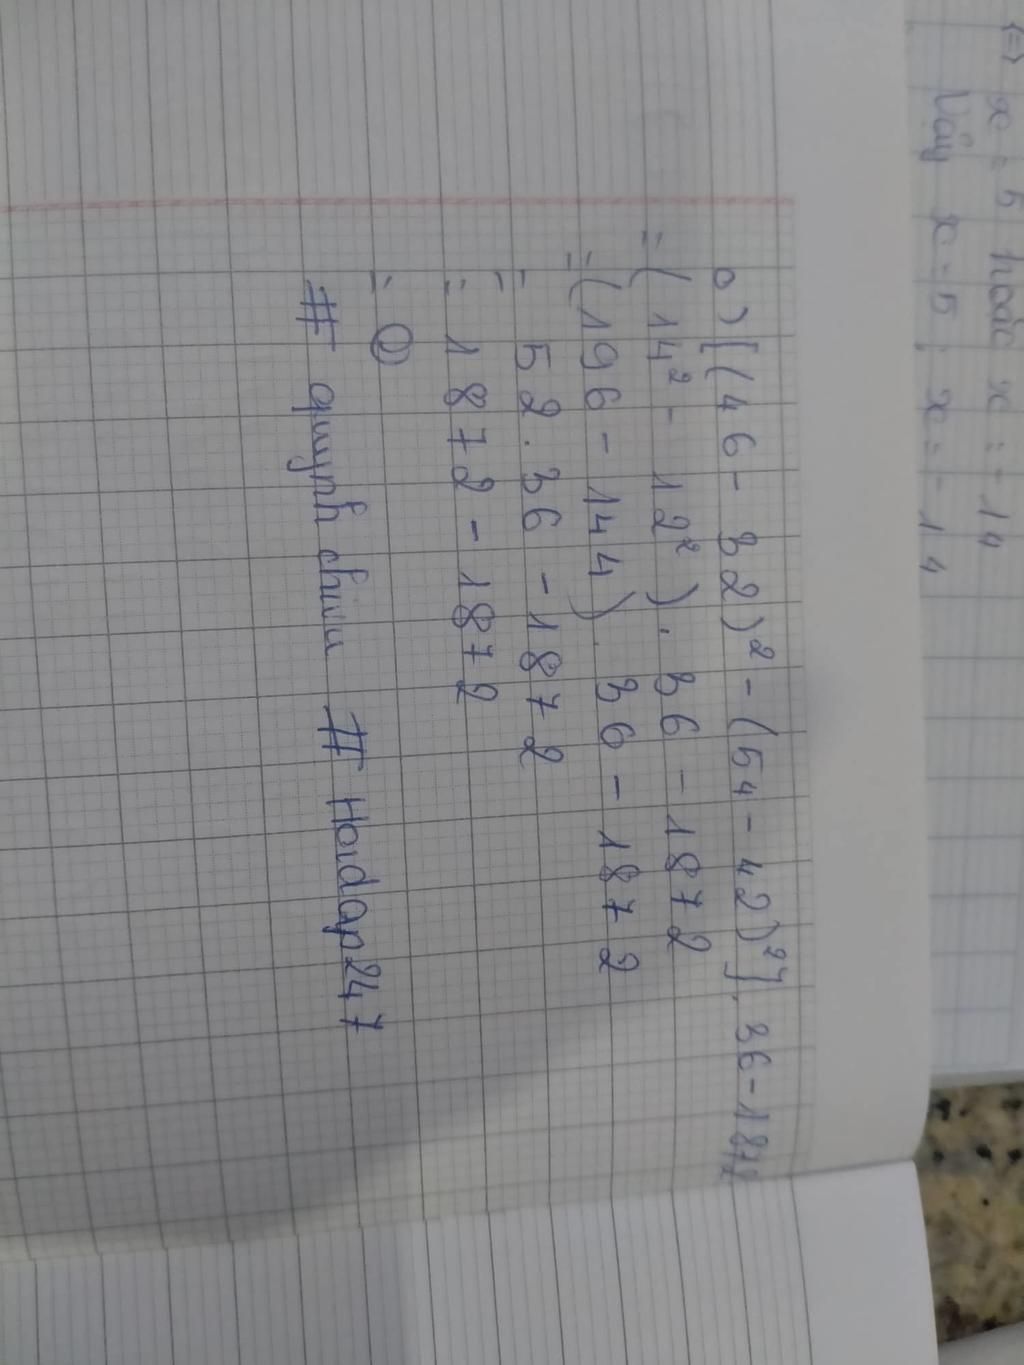 <=> x = 5 hoặc x = -14
Vậy x = 5 ; x = -14
a) [(46 - 32)² - (54 - 42)²] . 36 - 1872
= (14² - 12²) . 36 - 1872
= (196 - 144) . 36 - 1872
= 52 . 36 - 1872
= 1872 - 1872
= 0
# quynh chiuu # Hoidap247